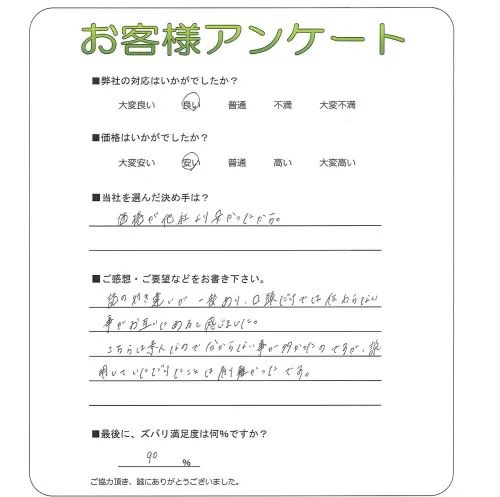 お客様アンケート
■弊社の対応はいかがでしたか？
大変良い 良い 普通 不満 大変不満
■価格はいかがでしたか？
大変安い 安い 普通 高い 大変高い
■当社を選んだ決め手は？
価格が他社より安かったから。
■ご感想・ご要望などをお書き下さい。
話の行き違いが一番あり、口頭だけでは伝わらない
事がお互いにあると感じました。
こちらは素人なので分からない事が多かったのですが、説
明していただけたことは有り難かったです。
■最後に、ズバリ満足度は何％ですか？
90 %
ご協力頂き、誠にありがとうございました。